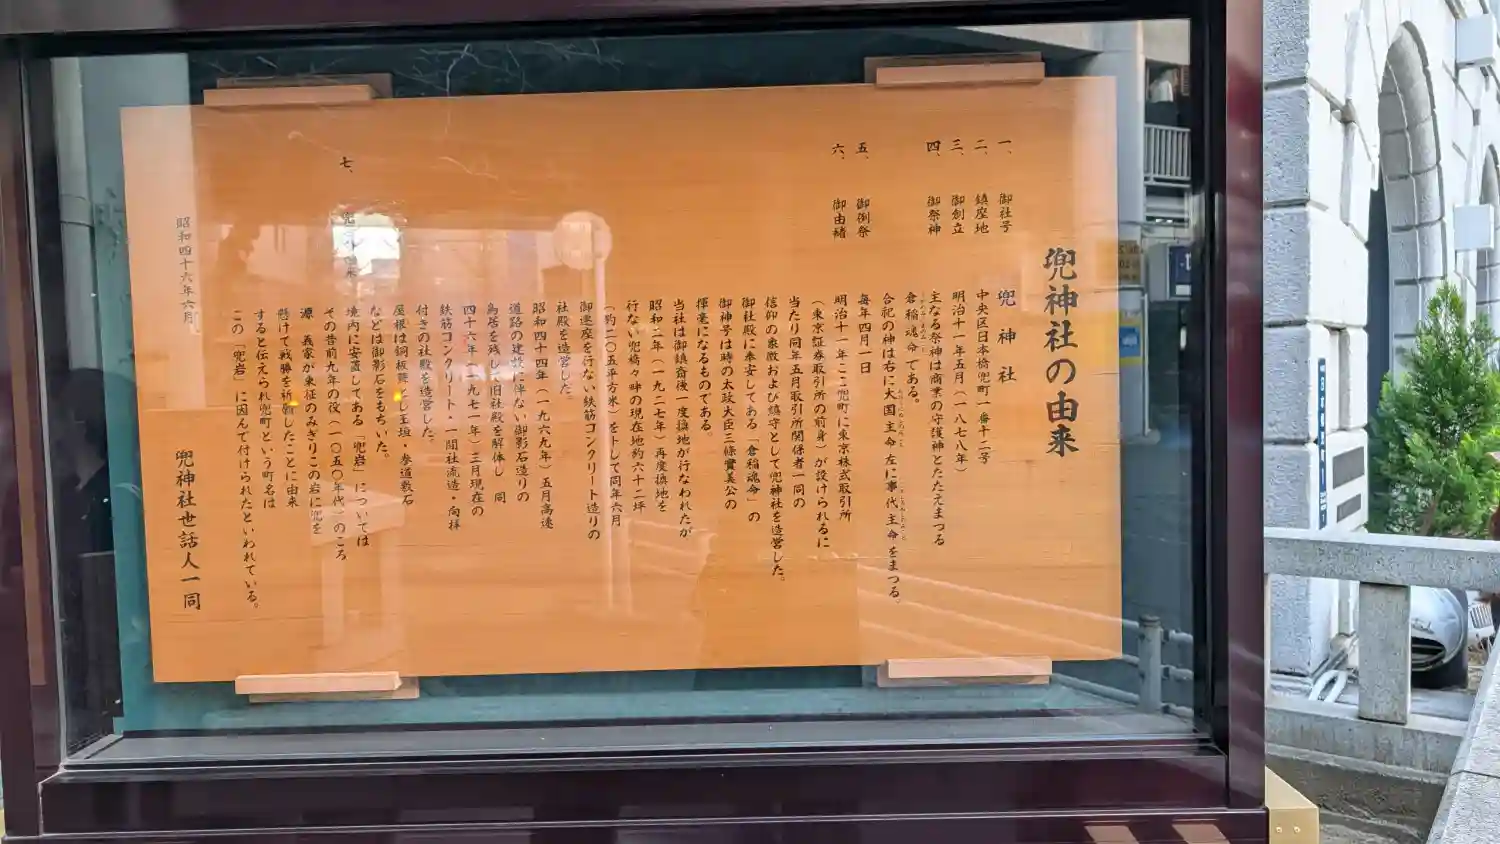 兜神社の由来
一、 御社号 兜神社
二、 鎮座地 中央区日本橋兜町一番十二号
三、 御創立 明治十一年五月(一八七八年)
四、 御祭神 主なる祭神は商業の守護神とたたえまつる
倉稲魂命である。
合祀の神は右に大国主命 左に事代主命をまつる。
五、 御例祭 毎年四月一日
六、 御由緒 明治十一年ここ兜町に東京株式取引所
(東京証券取引所の前身)が設けられるに
当たり同年五月取引所関係者一同の
信仰の象徴および鎮守として兜神社を造営した。
御社殿に奉安してある「倉稲魂命」の
御神号は時の太政大臣三條實美公の
揮毫になるものである。
当社は御鎮斎後一度換地が行なわれたが
昭和二年(一九二七年)再度換地を
行ない兜橋々畔の現在地約六十二坪
(約二〇五平方米)を卜して同年六月
御遷座を行ない鉄筋コンクリート造りの
社殿を造営した
昭和四十四年(一九六九年)五月高速
道路の建設に伴ない御影石造りの
鳥居を残して旧社殿を解体し 同
四十六年(一九七一年)三月現在の
鉄筋コンクリート・一間社流造・向拝
付きの社殿を造営した。
屋根は銅板葺とし玉垣・参道敷石
などは御影石をもちいた。
七、 兜 由来 境内に安置してある「兜岩」については
その昔前九年の役(一〇五〇年代)のころ
源 義家が東征のみぎりこの岩に兜を
懸けて戦勝を祈願したことに由来
すると伝えられ兜町という町名は
この「兜岩」に因んで付けられたといわれている。
昭和四十六年六月
兜神社世話人一同